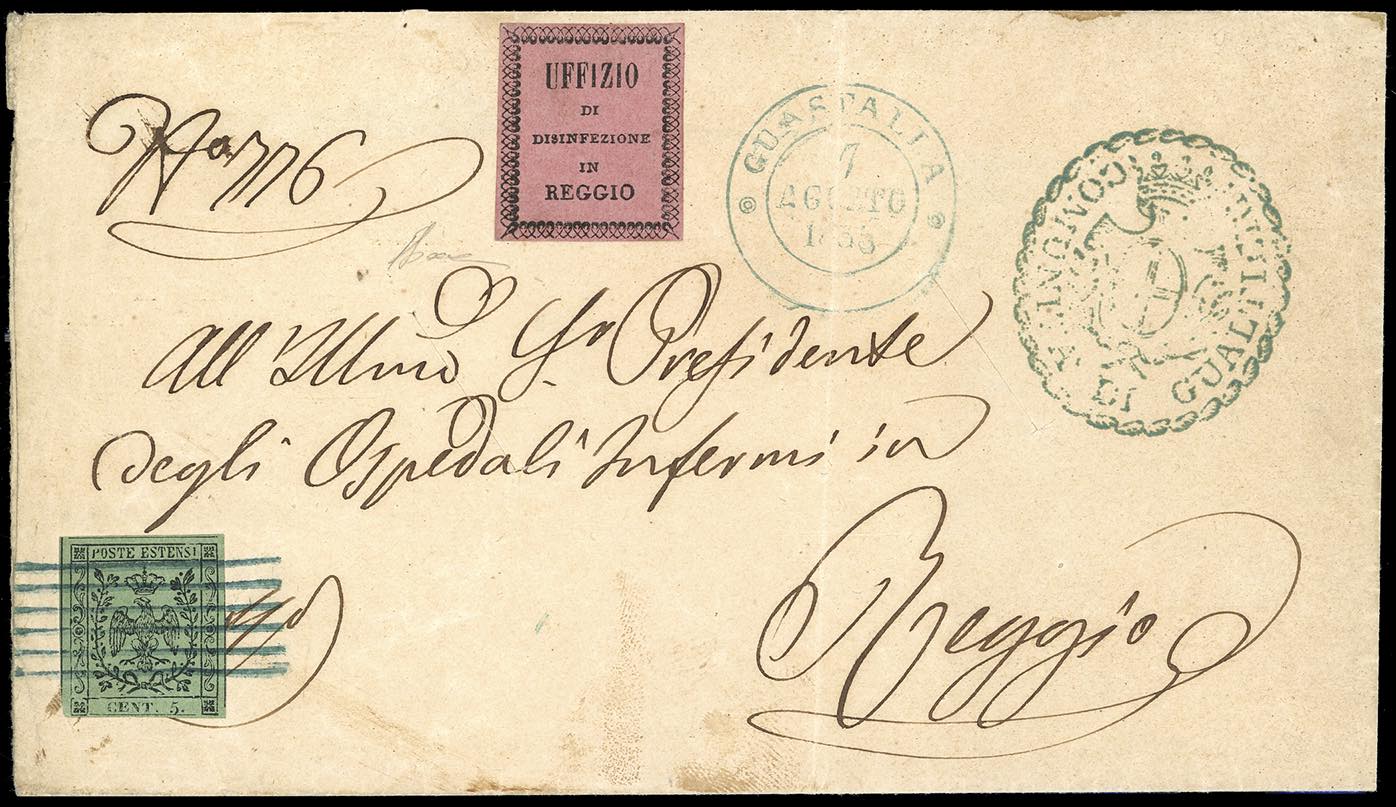 N.º 776
UFFIZIO
DI
DISINFEZIONE
IN
REGGIO
GUASTALLA
7
AGOSTO
1855
COMUNITA DI GUALTIERI
All' Illmo Sr Presidente
degli Ospedali Infermi in
Reggio
POSTE ESTENSI
CENT. 5.